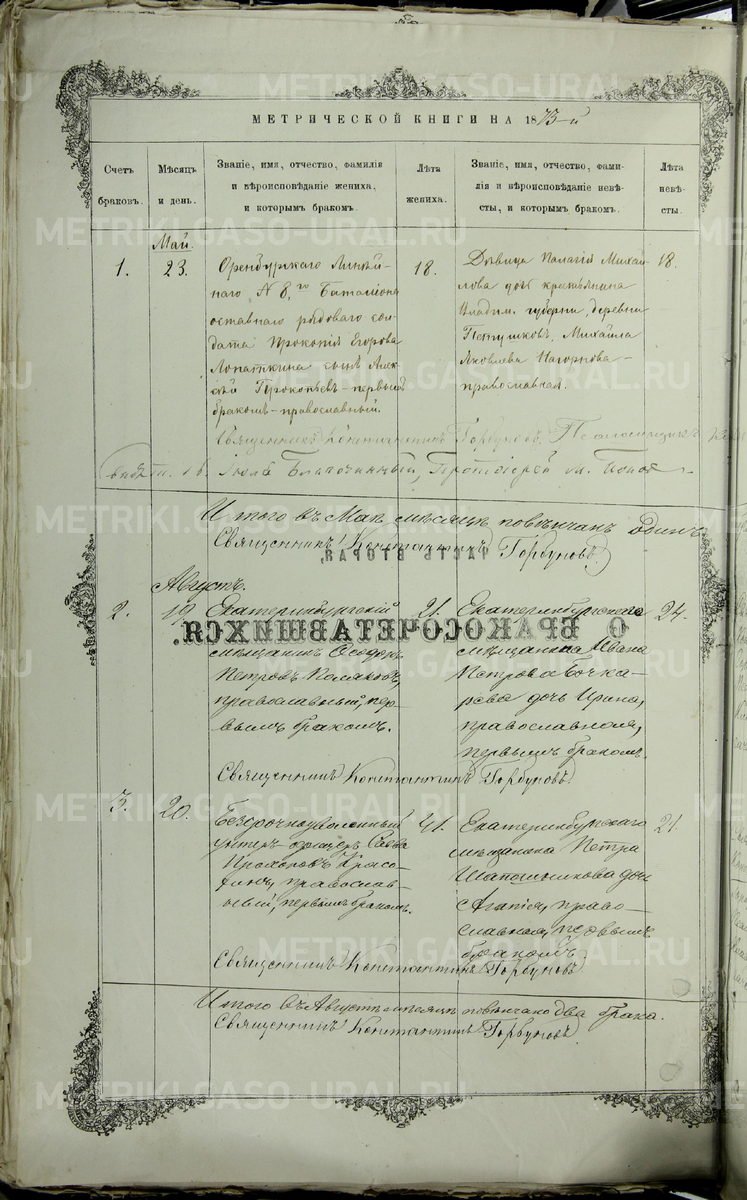 МЕТРИЧЕСКОЙ КНИГИ НА 1873-й
Счетъ
браковъ.
Мѣсяцъ
и день.
Званіе, имя, отчество, фамилія
и вѣроисповѣданіе жениха,
и которымъ бракомъ.
Лѣта
жениха.
Званіе, имя, отчество, фами-
лія и вѣроисповѣданіе невѣ-
сты, и которымъ бракомъ.
Лѣта
невѣ-
сты.
Май.
1.
23.
Оренбургкаго Линѣй-
наго N 8.го Баталіона
отставнаго рядоваго сол-
дата Прокопія Егорова
Лопаткина сынъ Алек-
сѣй Прокопьевъ - первымъ
бракомъ - православный.
18.
Дѣвица Палагія Михаи-
лова дочь крестьянина
Владим. губерни, деревни
Петушковъ, Михаила
Яковлева Нагорнова -
православная.
18.
Священникъ Константинъ Горбуновъ. Псаломщикъ
Благочинный, Протоіерей М. Поповъ
Итого въ Маѣ мѣсяцѣ повѣнчанъ одинъ
Священникъ Константинъ Горбуновъ.
ЧАСТЬ ВТОРАЯ,
О БРАКОСОЧЕТАВШИХСЯ.
Августъ.
2.
19.
Екатеринбургскій
мѣщанинъ
Петровъ Поляковъ,
православный, пер-
вымъ бракомъ.
21.
Екатеринбургскаго
мѣщанина Ивана
Петрова Бочка-
рева дочь Ирина,
православная,
первымъ бракомъ.
24.
Священникъ Константинъ Горбуновъ
3.
20.
Безсрочноуволенный
унтеръ-офицеръ Савва
Прохоровъ
православ-
ный, первымъ бракомъ.
41.
Екатеринбургскаго
мѣщанина Петра
Шапошникова дочь
Агапія, право-
славная, первымъ
бракомъ
21.
Священникъ Константинъ Горбуновъ
Итого въ Августѣ мѣсяцѣ повѣнчано два брака.
Священникъ Константинъ Горбуновъ
METRIKI.GASO-URAL.RU